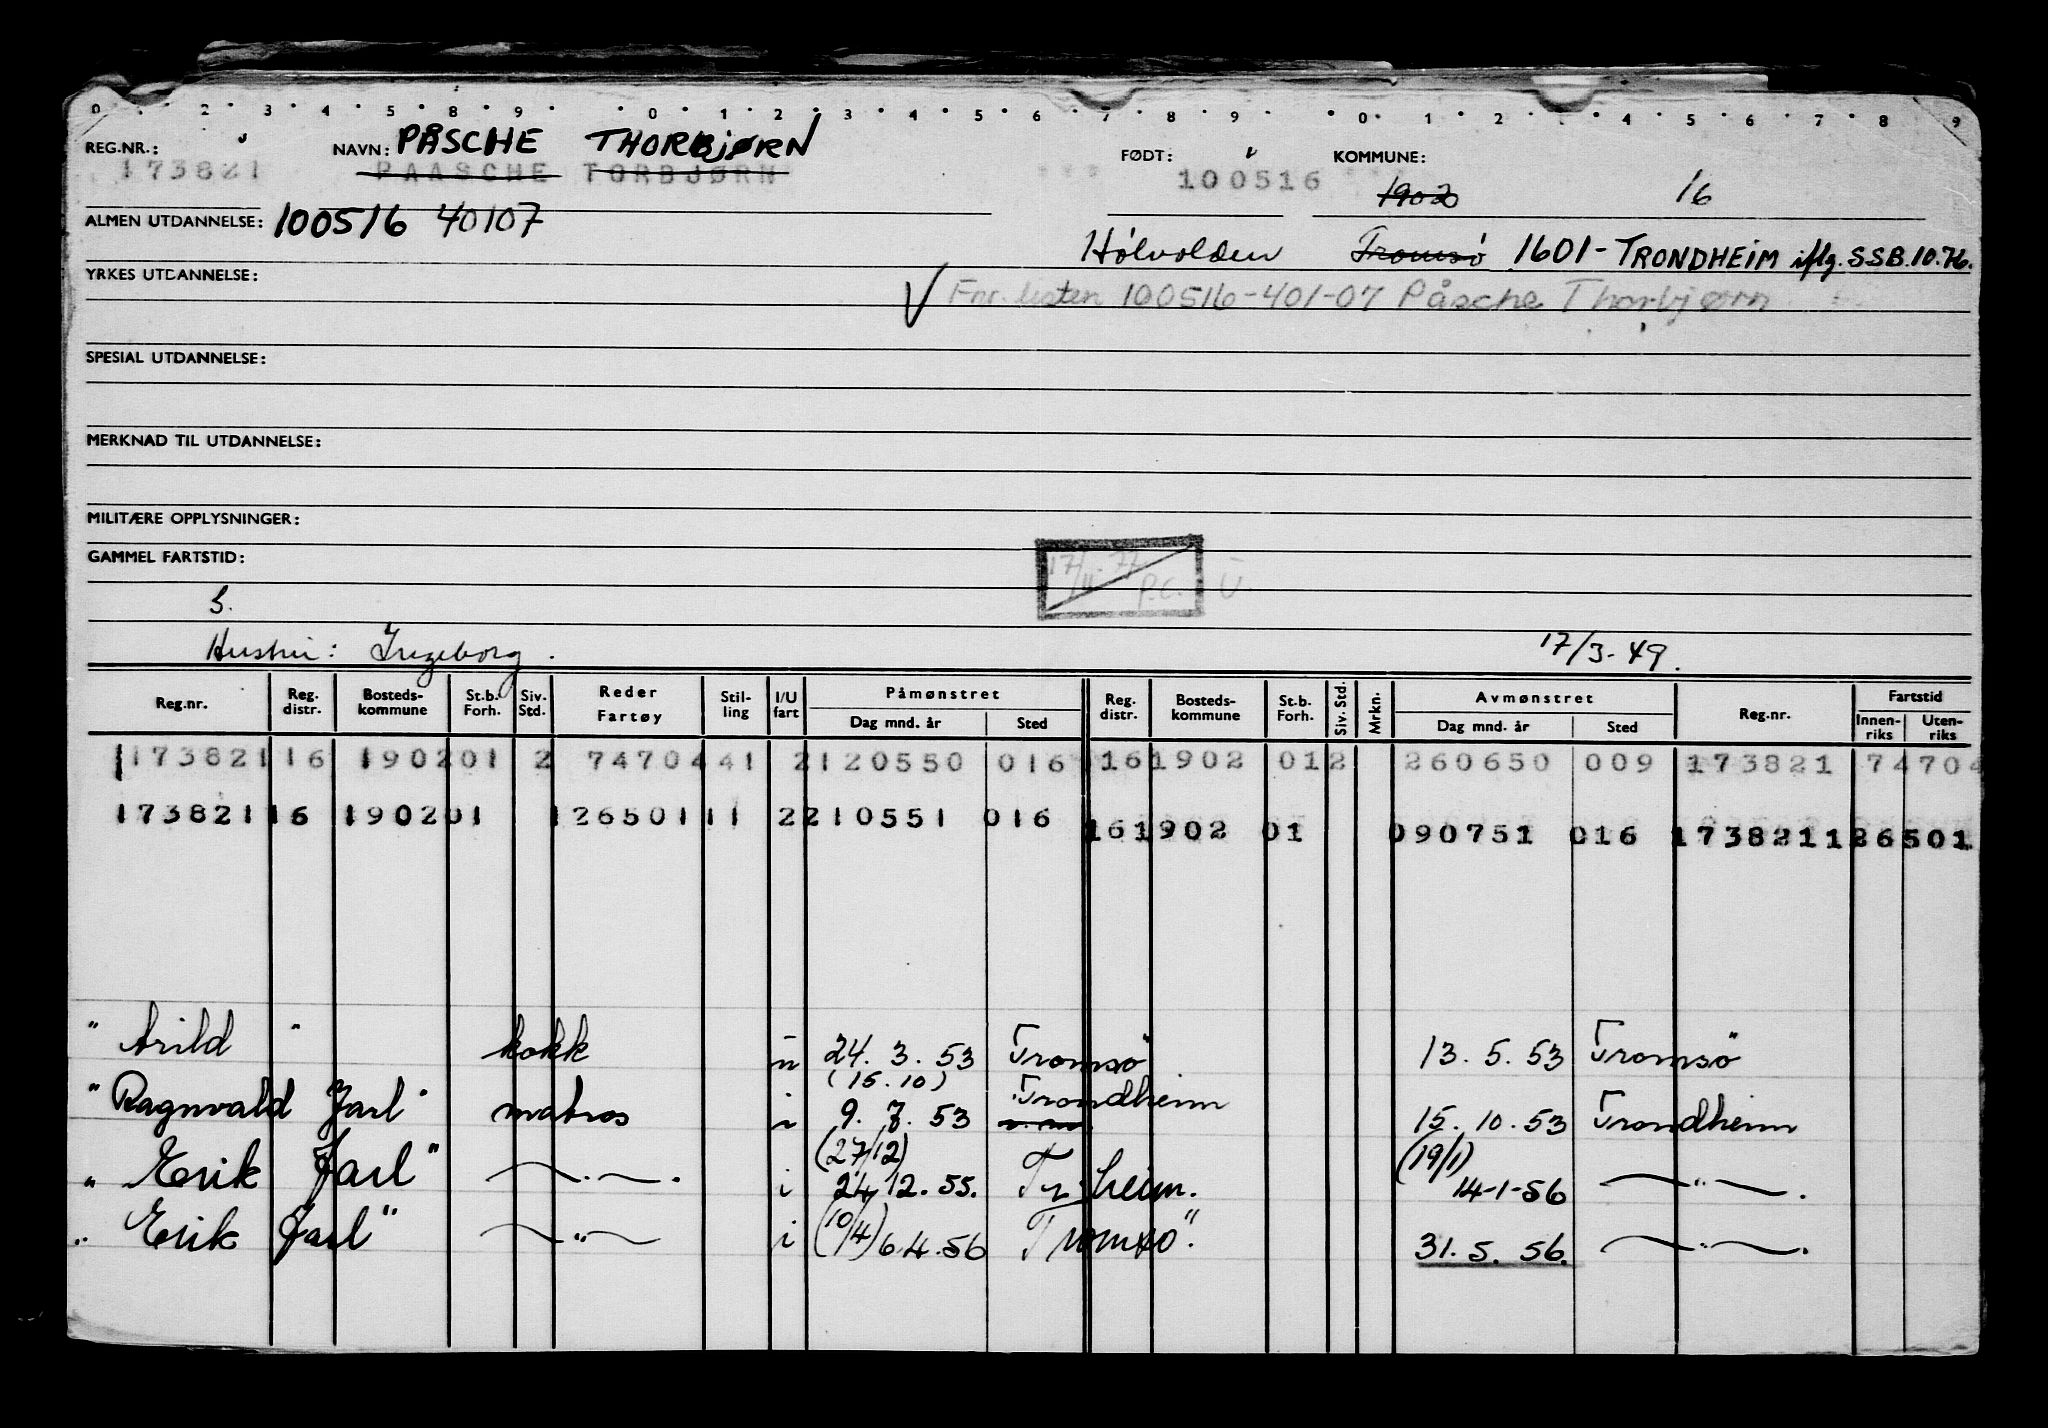 0 · · 2 · 3 · 4 · 5 · 8 · 9 · · 0 · 1 · 2 · 3 · 4 · 5 · 6 · 7 · 8 · 9 · · 0 · 1 · 2 · · 4 · 5 · 6 · 7 · 8 · 9
REG.NR.: NAVN: PÅSCHE THORBJØRN FØDT: KOMMUNE:
173821 PAASCHE TORBJØRN 100516 1902 16
ALMEN UTDANNELSE: 100516 40107
Hølvolden Tromsø 1601-TRONDHEIM iflg. SSB.10.76.
YRKES UTDANNELSE:
√ Fnr. listen 100516-401-07 Påsche Thorbjørn
SPESIAL UTDANNELSE:
MERKNAD TIL UTDANNELSE:
MILITÆRE OPPLYSNINGER:
GAMMEL FARTSTID:
17/11-77 P.C. U.
S.
Hustru: Ingeborg. 17/3-49.
Reg.nr. Reg. distr. Bosteds-kommune St.b. Forh. Siv. Std. Reder Fartøy Stil-ling I/U fart Påmønstret Dag mnd. år Sted Reg. distr. Bosteds-kommune St.b. Forh. Siv. Std. Mrkn. Avmønstret Dag mnd. år Sted Reg.nr. Fartstid Innen-riks Uten-riks
173821 16 1902 01 2 74704 41 2 120550 016 16 1902 01 2 260650 009 173821 74704
173821 16 1902 01 126501 11 2 210551 016 16 1902 01 090751 016 173821 126501
" Arild " kokk u 24. 3. 53 Tromsø 13. 5. 53 Tromsø
(15.10)
" Ragnvald Jarl" matros i 9. 7. 53 Trondheim 15. 10. 53 Trondheim
(27/12) (19/1)
" Erik Jarl" —·—. i 24.12.55. Tr.heim. 14-1-56 —"—.
" Erik Jarl" —"— i (10/4) 6.4.56 Tromsø. 31. 5. 56. —"—.